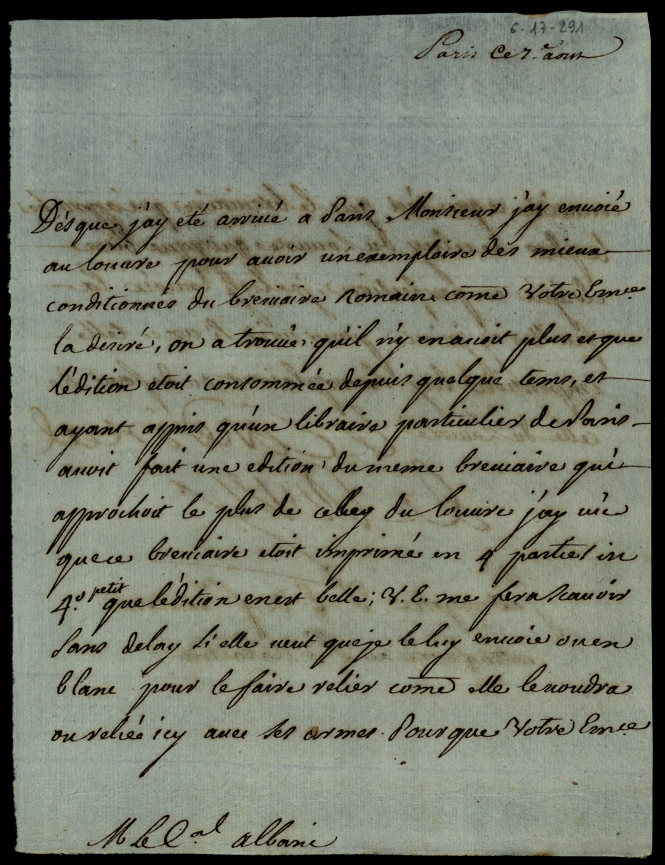 6-17-291
Paris ce 7. aout
Dés que j'ay eté arrivé a Paris Monsieur j'ay envoié
au louvre pour avoir un exemplaire des mieux
conditionnés du breviaire Romain come Votre Em.ce
la desiré, on a trouvé qu'il n'y en avoit plus et que
l'édition etoit consommée depuis quelque tems, et
ayant appris qu'un libraire particulier de Paris
avoit fait une edition du meme breviaire qui
approchoit le plus de celuy du louvre j'ay vû
que ce breviaire etoit imprimé en 4 parties in
4.o petit que l'édition en est belle; V. E. me fera scavoir
sans delay si elle veut que je le luy envoie ou en
blanc pour le faire relier come elle le voudra
ou reliée icy avec ses armes. Pour que Votre Em.ce
M le C.al albani